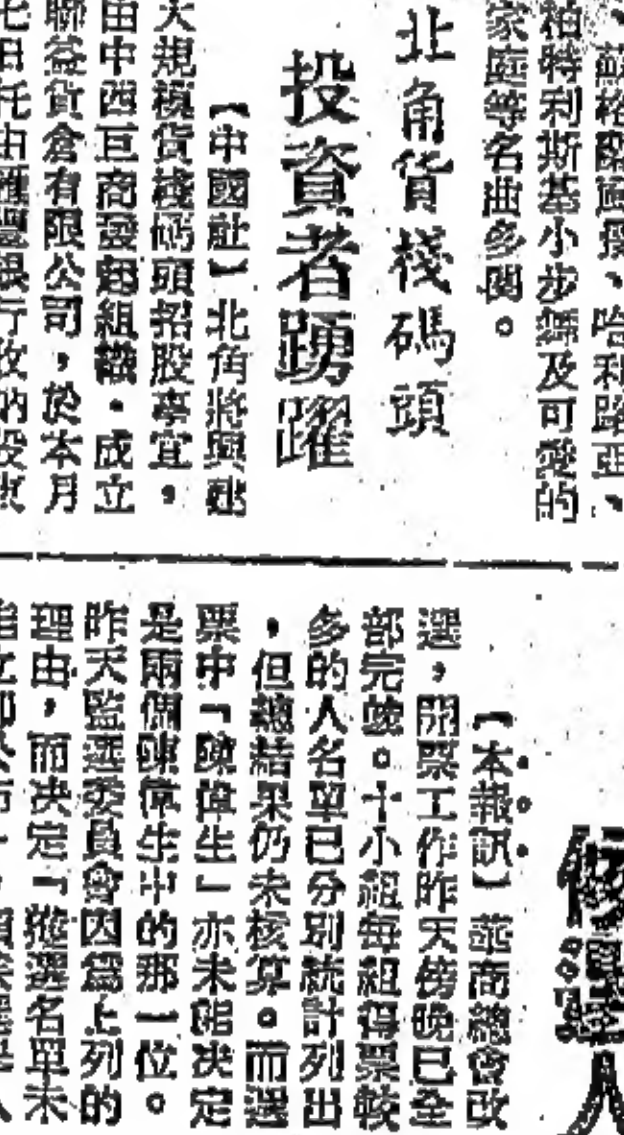 、蘇格蘭風授、哈利路亞、
柏特利斯基小步舞及可愛的
家庭等名曲多闋。
北角貨棧碼頭
投資者踴躍
【中國社】北角將興建
大規模貨棧碼頭招股事宜，
由中西巨商發起組織，成立
聯益貨倉有限公司，於本月
七日托由滙豐銀行收納股東
【本報訊】華商總會改
選，開票工作昨天傍晚已全
部完竣。十小組每組得票較
多的人名單已分別統計列出
，但總結果仍未核算。而選
票中「陳偉生」亦未能決定
是兩個陳偉生中的那一位。
昨天監選委員會因爲上列的
理由，而決定「複選名單未
選人